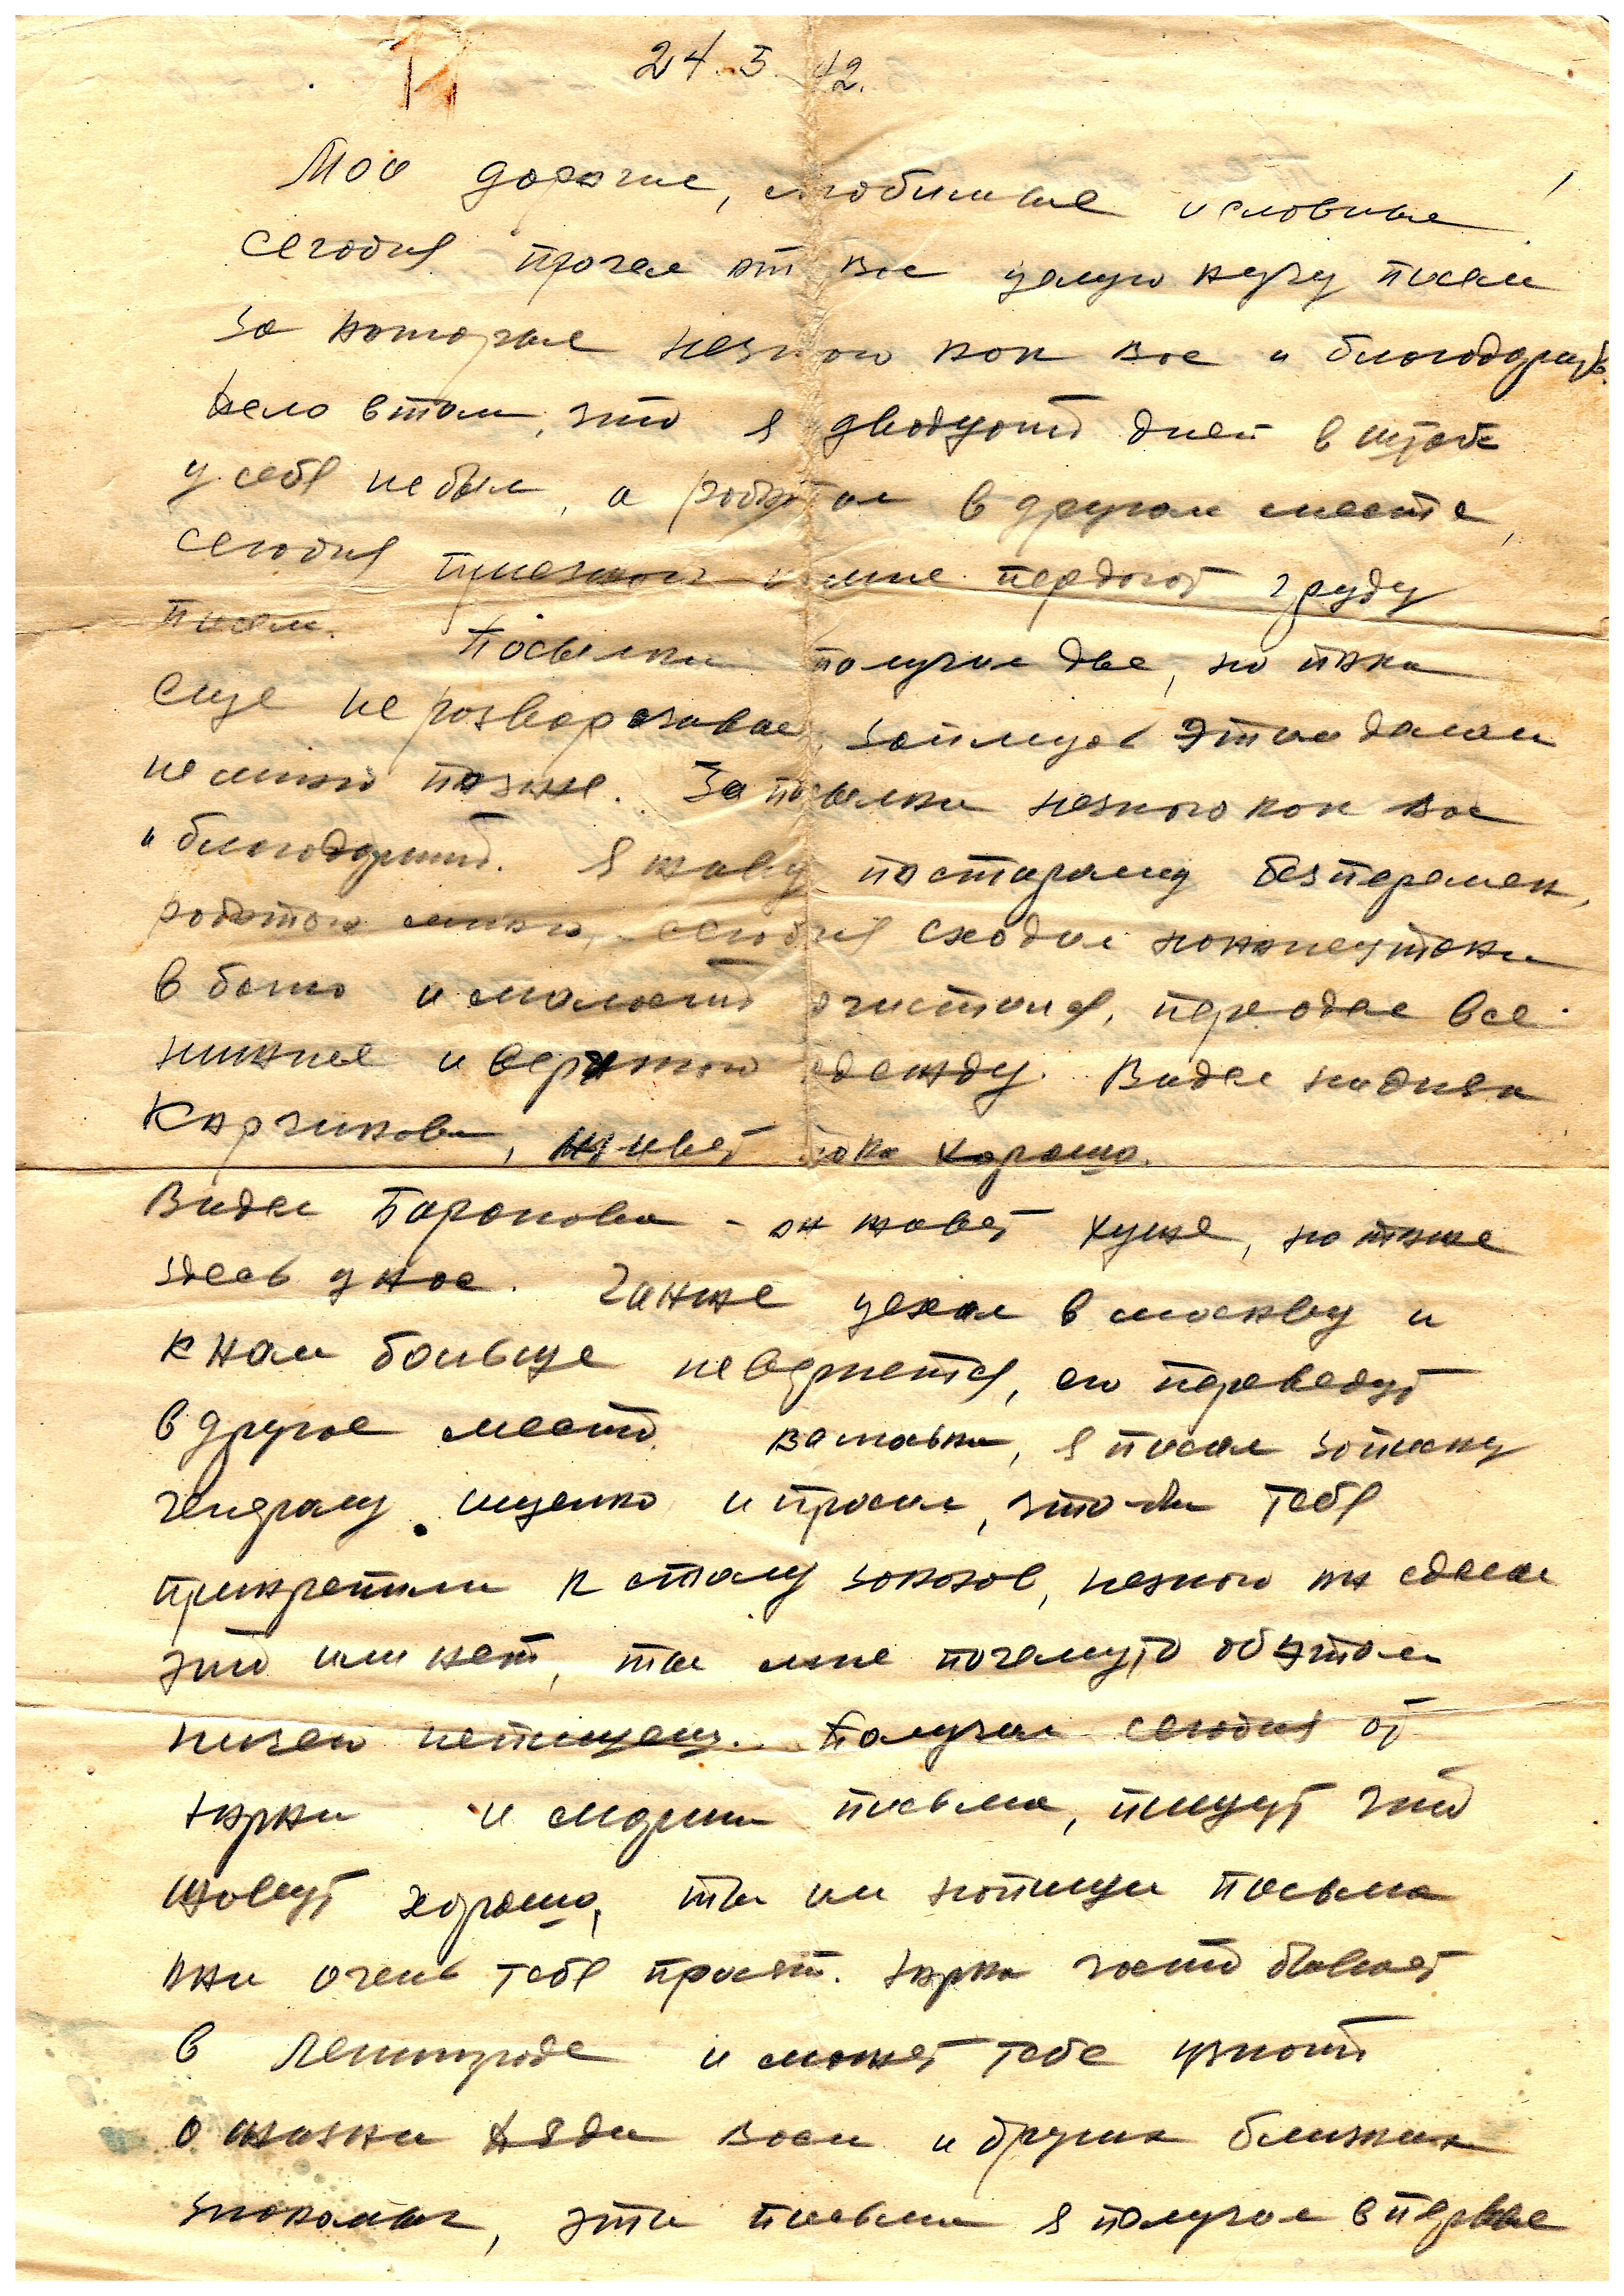 24.5.42.
Мои дорогие, любимые и славные!
Сегодня прочел от вас целую кучу писем
за которые незнаю как вас и благодарить.
Дело втом, что я двадцать дней в штабе
у себя не был, а работал в другом месте,
сегодня приезжаю и мне передают груду
писем. Посылки получил две, но пока
еще не разворачивал, займусь этим делом
немного позже. За посылки незнаю как вас
и благодарить. Я живу постарому безперемен,
работаю много, сегодня сходил наконецтаки
в баню и малость очистился, переодел все
нижнее и верхнюю одежду. Видел на днях
Карчикова, живет пока хорошо.
Видел Баранова - он живет хуже, но тоже
здесь у нас. Ганже уехал в москву и
к нам больше невернется, его переведут
в другое место. я писал записку
генералу ищенко и просил, что-бы тебя
прикрепили к столу заказов, незнаю он сделал
это или нет, ты мне почемуто обэтом
ничего непишешь. Получил сегодня от
Юрки и марии письма, пишут что
живут хорошо, ты им напиши письма
они очень тебя просят. Юрка часто бывает
в Ленинграде и может тебе узнать
о жизни Дяди Васи и других близких
знакомых, эти письма я получил в первые